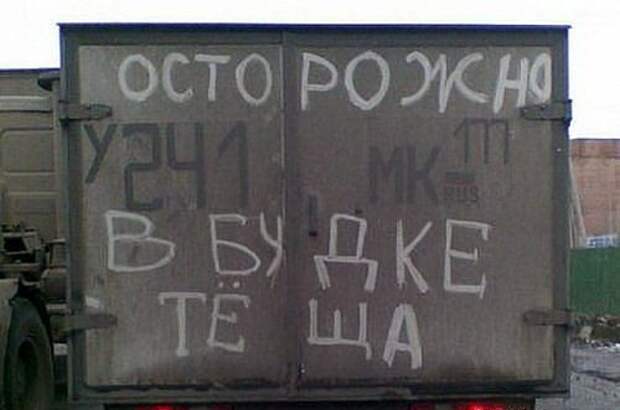 ОСТОРОЖНО
У 241 МК 177 RUS
В БУДКЕ
ТЁЩА